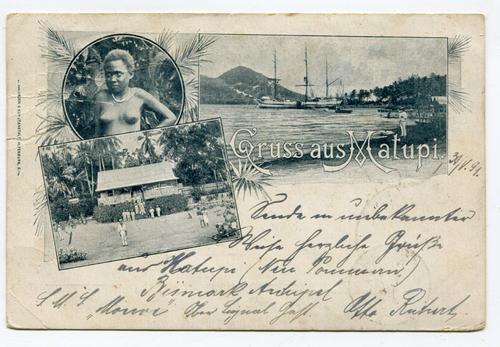 Gruss aus Matupi.
Sende in unbekannter
Weise herzliche Grüße
aus Matupi (Neu Pommern)
Bismark Archipel
S.M.S. "Möwe" Ober Signal Gast. Otto